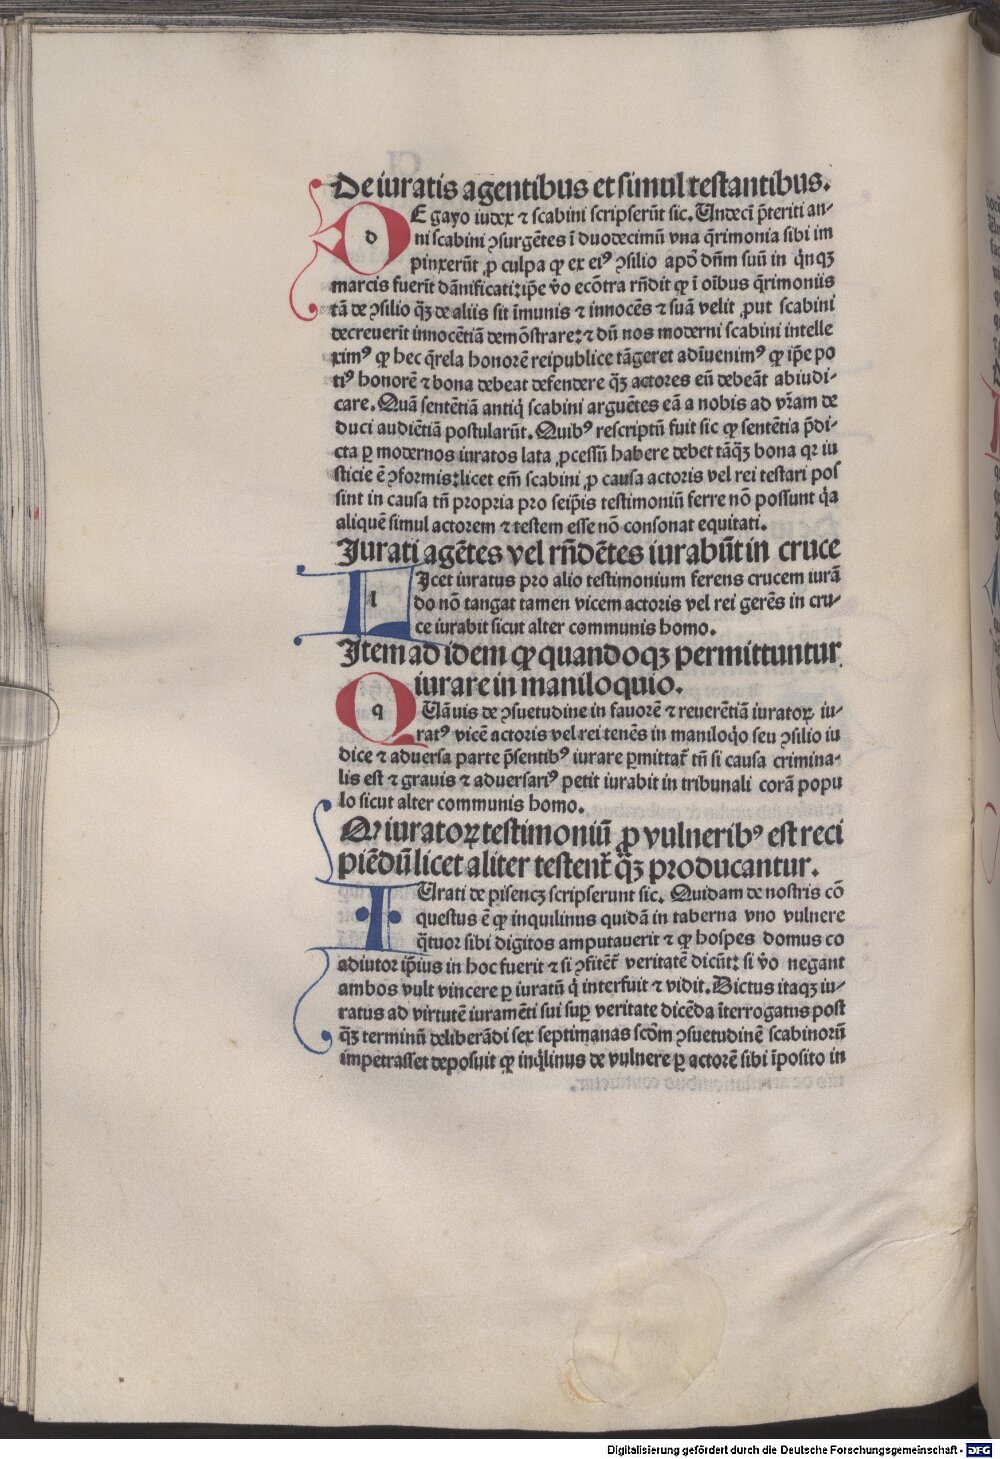 De iuratis agentibus et simul testantibus.
d E gayo iudex ⁊ scabini scripserūt sic. Undecī p̄teriti an⸗
ni scabini ꝯsurgētes ī duodecimū vna q̄rimonia sibi im
pinxerūt ꝓ culpa ꝙ ex eiꝰ ꝯsilio apō dn̄m suū in qͥnqꝫ
marcis fuerīt dānificati: ip̄e v̄o ecōtra rn̄dit ꝙ ī oībus q̄rimoniis
tā de ꝯsilio qͣꝫ de aliis sit īmunis ⁊ innocēs ⁊ suā velit ꝓut scabini
decreuerīt innocētiā demōstrare: ⁊ dū nos moderni scabini intelle
ximꝰ ꝙ hec q̄rela honorē reipublice tāgeret adīuenimꝰ ꝙ ip̄e po
tiꝰ honorē ⁊ bona debeat defendere qͣꝫ actores eū debeāt abiudi⸗
care. Quā sentētiā antiqͥ scabini arguētes eā a nobis ad vr̄am de
duci audiētiā postularūt. Quibꝰ rescriptū fuit sic ꝙ sentētia p̄di⸗
cta ꝑ modernos iuratos lata ꝓcessū habere debet tāqͣꝫ bona qꝛ iu
sticie ē ꝯformis: licet em̄ scabini ꝓ causa actoris vel rei testari pos
sint in causa tn̄ propria pro seip̄is testimoniū ferre nō possunt qͥa
aliquē simul actorem ⁊ testem esse nō consonat equitati.
Jurati agētes vel rn̄dētes iurabūt in cruce
l Jcet iuratus pro alio testimonium ferens crucem iurā
do nō tangat tamen vicem actoris vel rei gerēs in cru⸗
ce iurabit sicut alter communis homo.
Jtem ad idem ꝙ quandoqꝫ permittuntur
iurare in maniloquio.
q Uāuis de ꝯsuetudine in fauorē ⁊ reuerētiā iuratoꝝ iu⸗
ratꝰ vicē actoris vel rei tenēs in maniloqͦo seu ꝯsilio iu
dice ⁊ aduersa parte p̄sentibꝰ iurare ꝑmittat̄ tn̄ si causa crimina⸗
lis est ⁊ grauis ⁊ aduersariꝰ petit iurabit in tribunali corā popu
lo sicut alter communis homo.
Qꝭ iuratoꝝ testimoniū ꝓ vulneribꝰ est reci
piēdū licet aliter testent̄ qͣꝫ producantur.
I Urati de pisencꝫ scripserunt sic. Quidam de nostris cō
questus ē ꝙ inquilinus quidā in taberna vno vulnere
qͣtuor sibi digitos amputauerit ⁊ ꝙ hospes domus co
adiutor ip̄ius in hoc fuerit ⁊ si ꝯfitēt̄ veritatē dicūt: si v̄o negant
ambos vult vincere ꝑ iuratū qͥ interfuit ⁊ vidit. Dictus itaqꝫ iu⸗
ratus ad virtutē iuramēti sui suꝑ veritate dicēda īterrogatus post
qͣꝫ terminū deliberādi sex septimanas scd̄m ꝯsuetudinē scabinorū
impetrasset deposuit ꝙ inqͥlinus de vulnere ꝑ actorē sibi īposito in
Digitalisierung gefördert durch die Deutsche Forschungsgemeinschaft - DFG